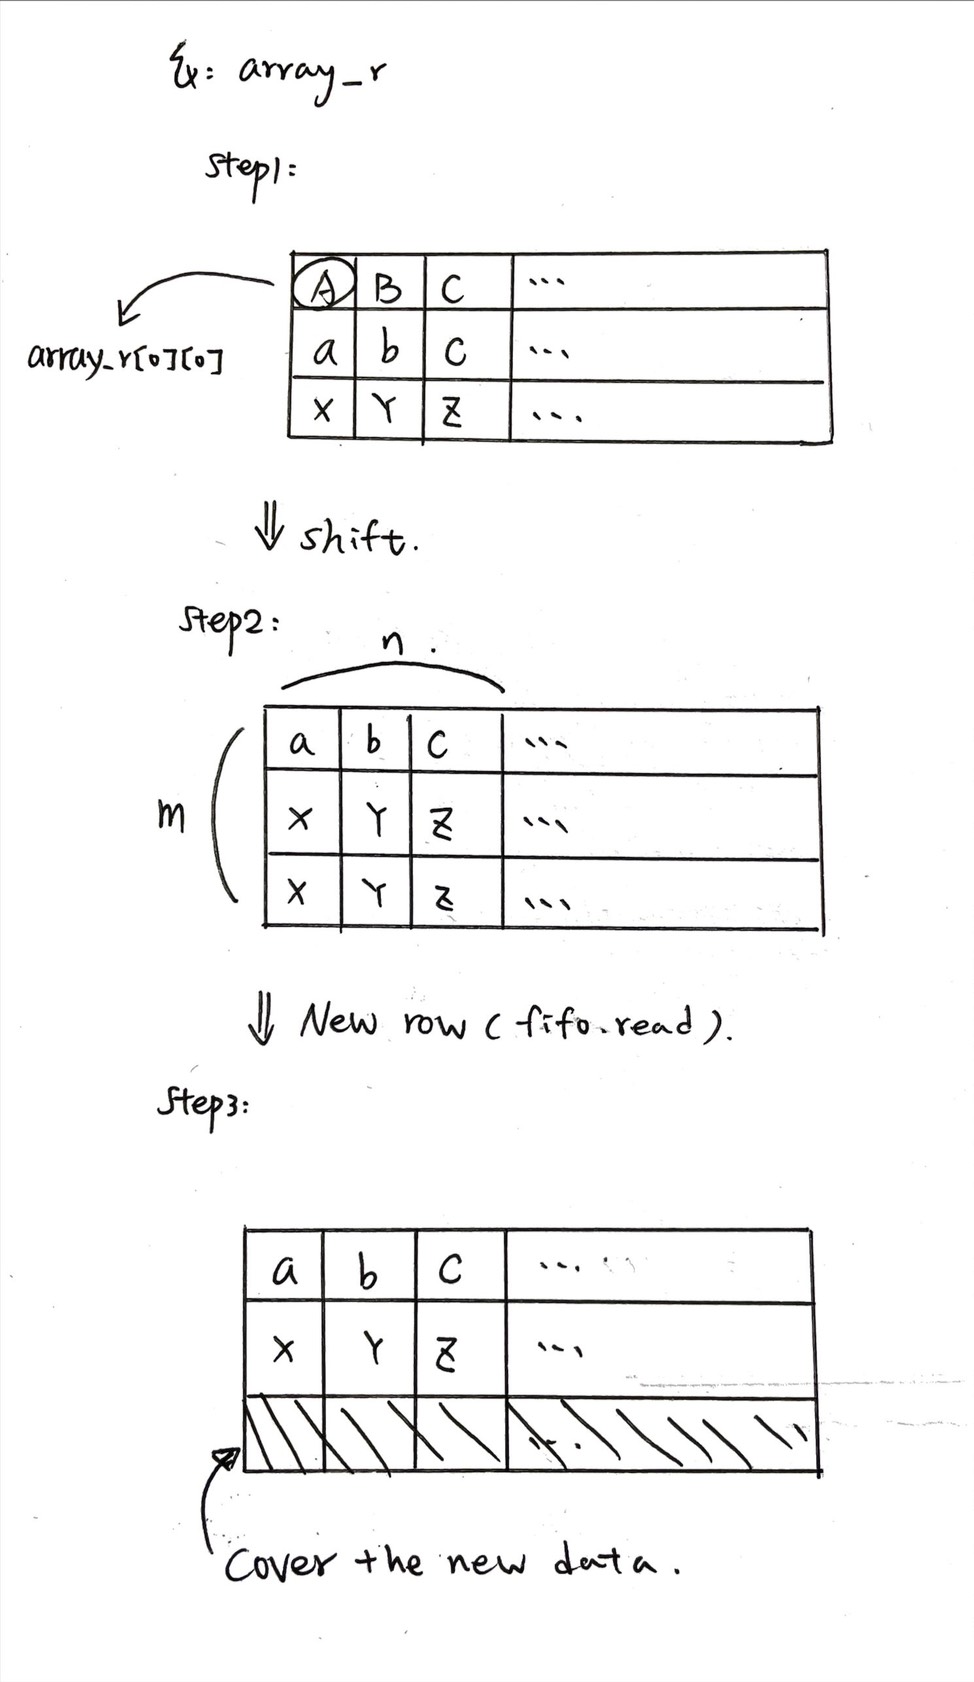 Ex: array_r
Step1:
A B C ...
array_r[0][0]
a b c ...
X Y Z ...
⇓ shift.
Step2:
n.
a b c ...
m
X Y Z ...
X Y Z ...
⇓ New row (fifo.read).
Step3:
a b c ...
X Y Z ...
...
Cover the new data.